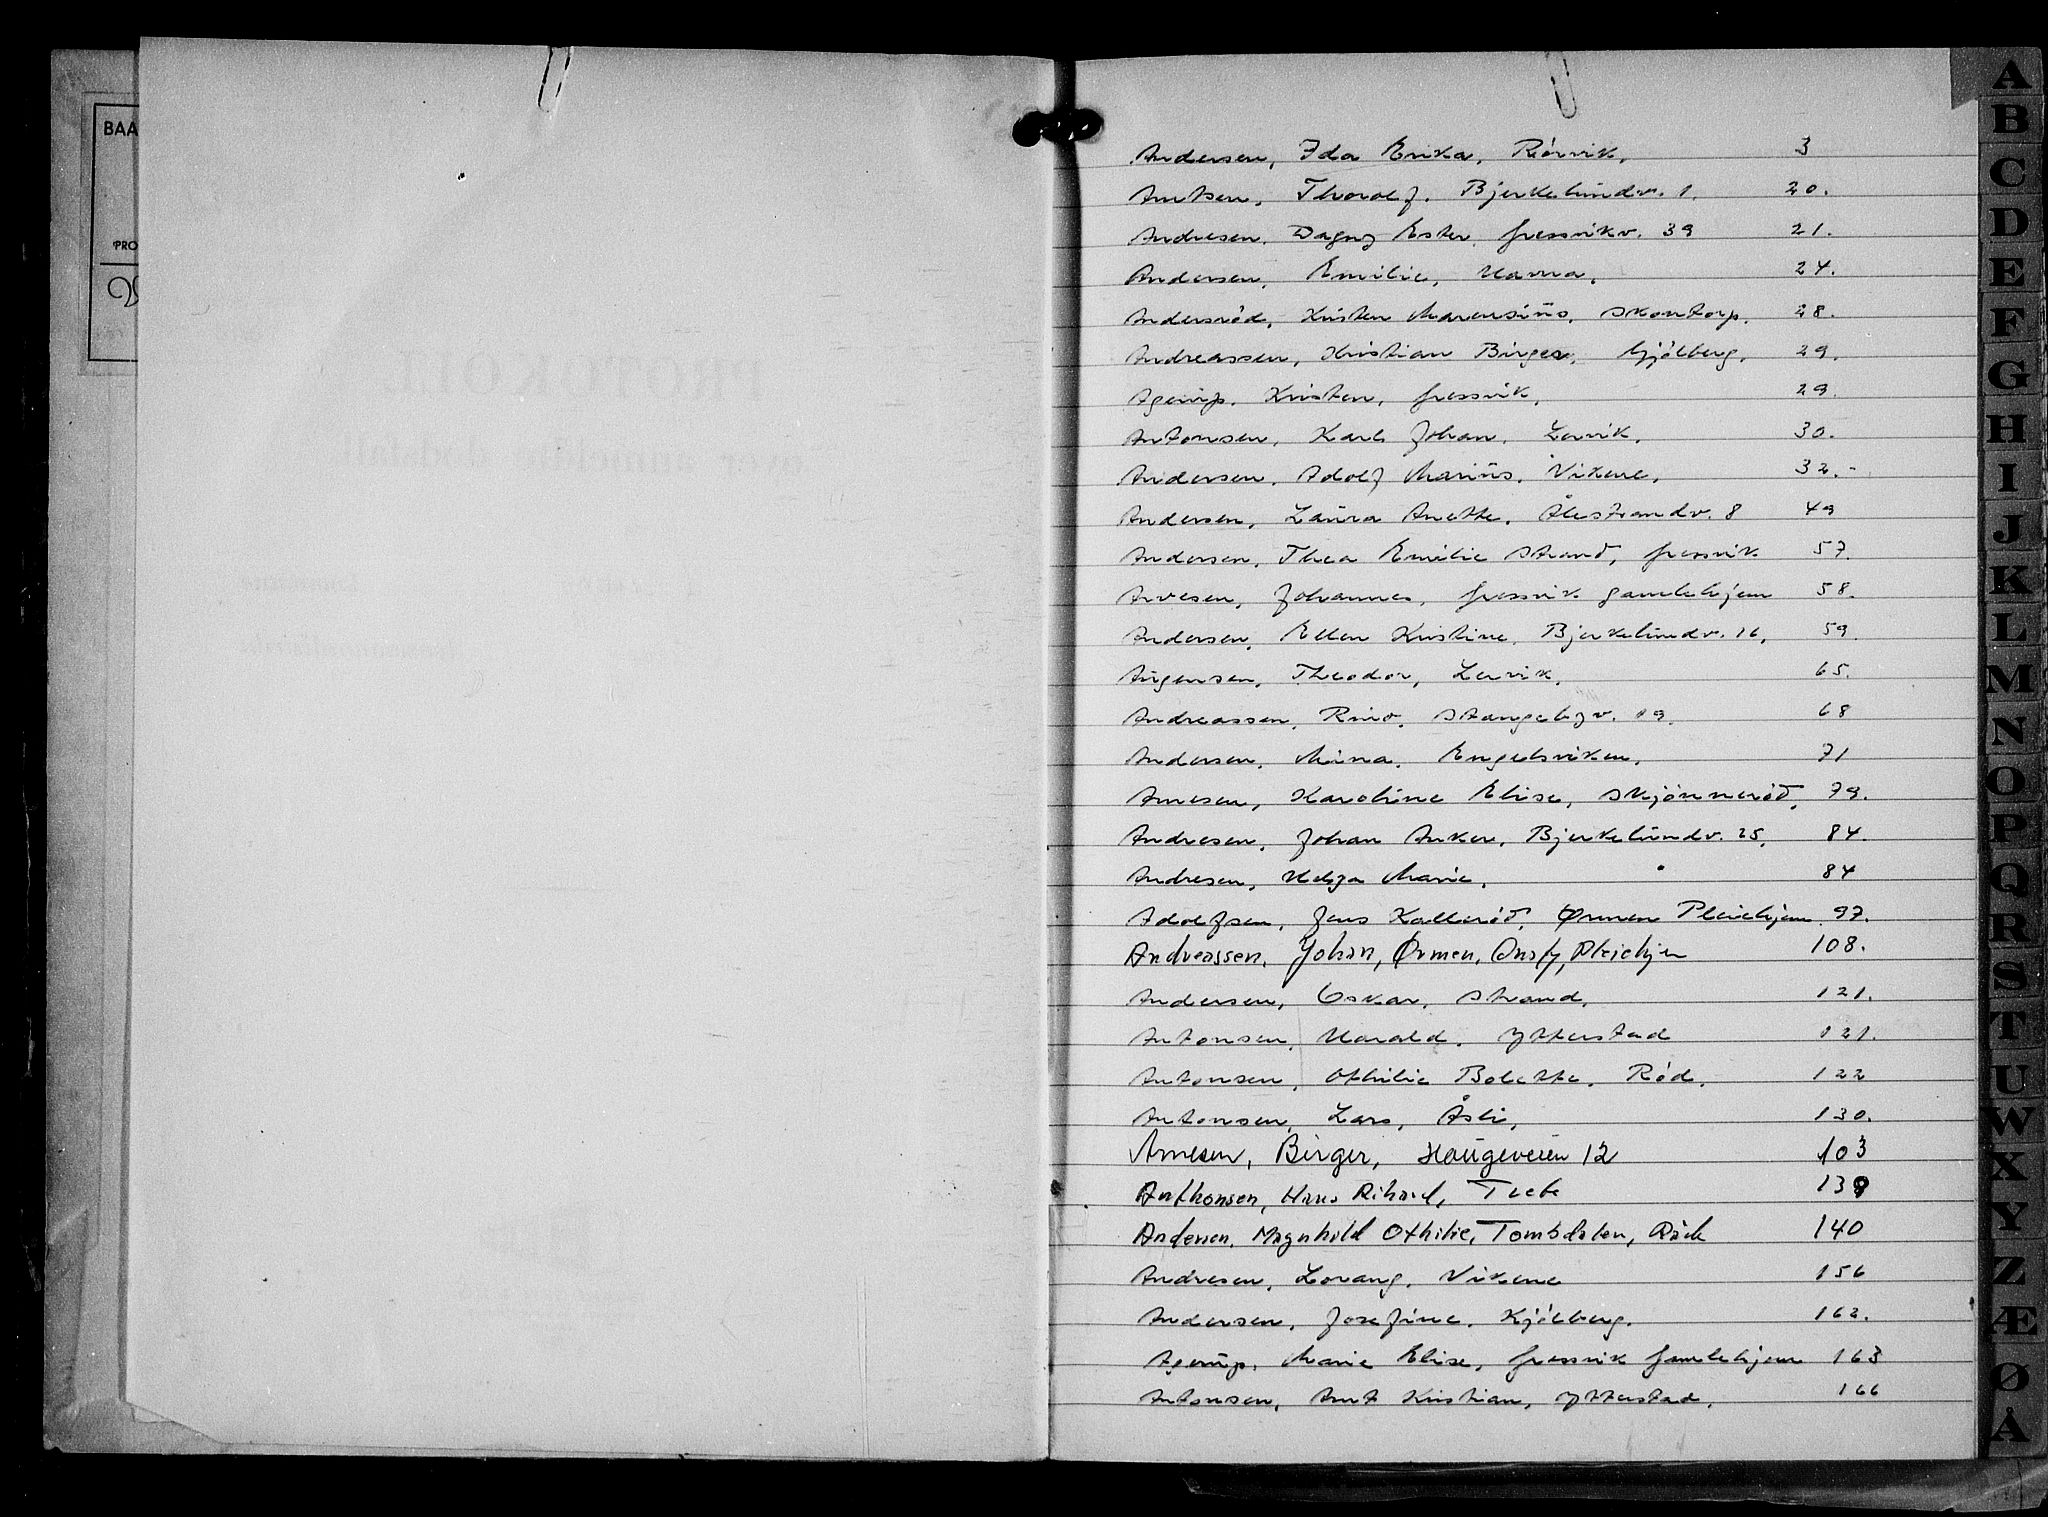 BAA
PRO
Andersen, Ida Erika, Rörvik, 3
Arntsen, Thorolf. Bjerkelundv. 1. 20.
Andresen. Dagny Ester, Gressvikv. 39 21.
Andersen, Emilie, Hauna. 24.
Andersröd, Kristen Marensius, Skontorp. 28.
Andreassen, Kristian Birger, Kjölberg, 29.
Agerup. Kristen, Gressvik, 29.
Antonsen, Karl Johan, Lervik, 30.
Andersen, Adolf Marius, Vikene, 32.-
Andersen, Laura Anette, Ålestrandv. 8 49
Andersen, Thea Emilie Strand, Gressvik 57.
Arvesen, Johannes, Gressvik gamlehjem 58.
Andersen, Ellen Kristine, Bjerkelundv. 16, 59.
Augensen, Theodor, Lervik, 65.
Andreassen, Stangebyv. 19. 68
Andersen, Mina, Engelsviken, 71
Arnesen, Karoline Elise, Skjönneröd, 79.
Andresen, Johan Anker, Bjerkelundv. 25, 84.
Andresen, Helga Marie, " 84
Adolfsen, Jens Kalleröd, Ørmen Pleiehjem 97.
Andreassen, Johan, Ørmen, Onsøy, Pleiehjem 108.
Andersen, Oskar, Strand, 121.
Antonsen, Harald. Ytterstad 121.
Antonsen, Othilie Bolette. Röd. 122
Antonsen, Lars, Åsli, 130.
Arnesen, Birger, Haugeveien 12 103
Anthonsen, Hans Rihard, 139
Andersen, Magnhild Othilie, Tombdalen, Råde 140
Andresen, Lorang, Vikene 156
Andersen, Josefine. Kjölberg. 162.
Agerup, Marie Elise, Gressvik Gamlehjem 163
Antonsen, Arnt Kristian, Ytterstad, 166
A
B
C
D
E
F
G
H
I
J
K
L
M
N
O
P
Q
R
S
T
U
W
X
Y
Z
Æ
Ø
Å